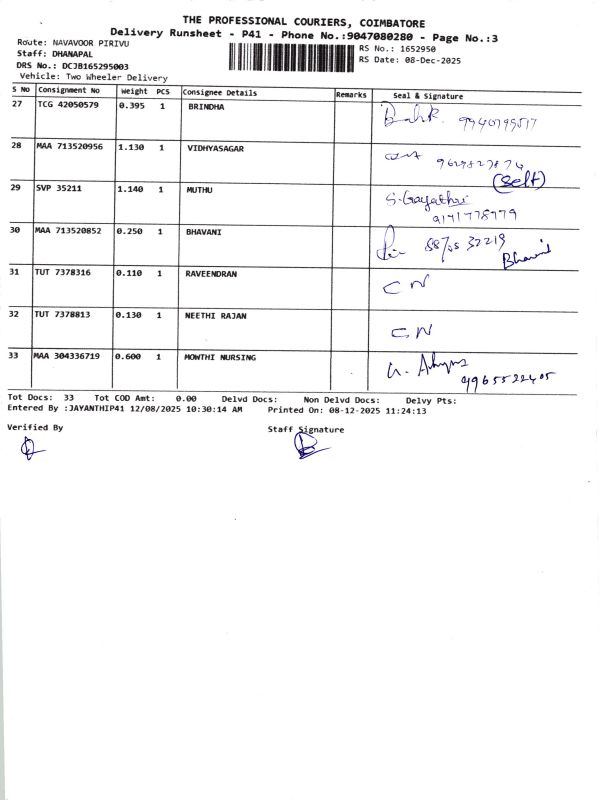 THE PROFESSIONAL COURIERS, COIMBATORE
Delivery Runsheet - P41 - Phone No.:9047080280 - Page No.:3
Route: NAVAVOOR PIRIVU
Staff: DHANAPAL
DRS No.: DCJB165295003
Vehicle: Two Wheeler Delivery
RS No.: 1652950
RS Date: 08-Dec-2025
S No Consignment No Weight PCS Consignee Details Remarks Seal & Signature
27 TCG 42050579 0.395 1 BRINDHA
28 MAA 713520956 1.130 1 VIDHYASAGAR
(self)
29 SVP 35211 1.140 1 MUTHU S. Gayathri
30 MAA 713520852 0.250 1 BHAVANI
31 TUT 7378316 0.110 1 RAVEENDRAN CN
32 TUT 7378813 0.130 1 NEETHI RAJAN CN
33 MAA 304336719 0.600 1 MOWTHI NURSING
9965522405
Tot Docs: 33 Tot COD Amt: 0.00 Delvd Docs: Non Delvd Docs: Delvy Pts:
Entered By :JAYANTHIP41 12/08/2025 10:30:14 AM Printed On: 08-12-2025 11:24:13
Verified By Staff Signature